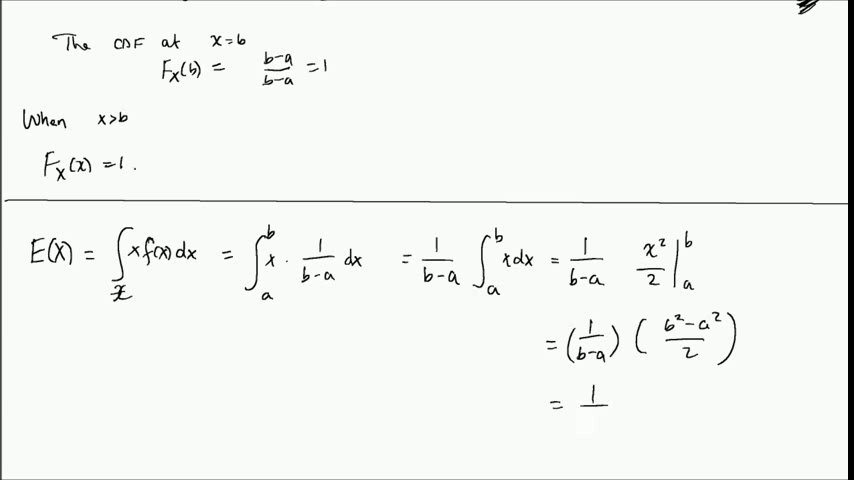 The CDF at x=b
F_X(b) = \frac{b-a}{b-a} = 1
When x>b
F_X(x) = 1.
E(X) = \int_x x f(x) dx = \int_a^b x \cdot \frac{1}{b-a} dx = \frac{1}{b-a} \int_a^b x dx = \frac{1}{b-a} \frac{x^2}{2} |_a^b
= (\frac{1}{b-a}) (\frac{b^2-a^2}{2})
= \frac{1}{}